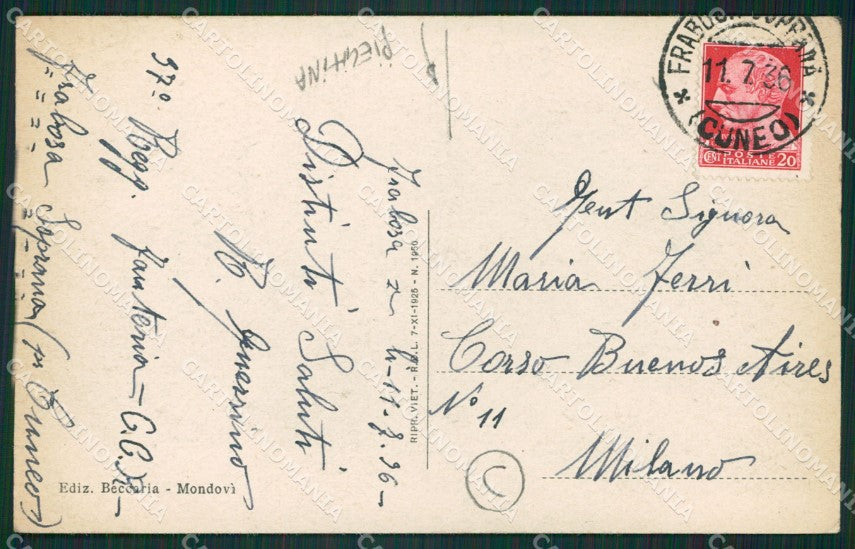 FRABOSA SOPRANA
11.7.36
(CUNEO)
POSTE
CENT ITALIANE 20
Gent Signora
Maria Ferri
Corso Buenos Aires
N° 11
Milano
Frabosa li 11.7.36
Distinti Saluti
37° Regg. Fanteria
Frabosa Soprana (in Cuneo)
RIPR. VIET. - R.B.L. 7-XI-1925 - N. 1950
Ediz. Beccaria - Mondovì
CARTOLINOMANIA